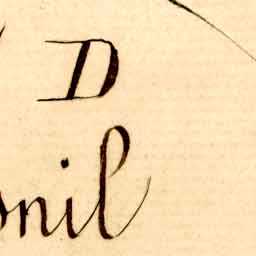 D
onil